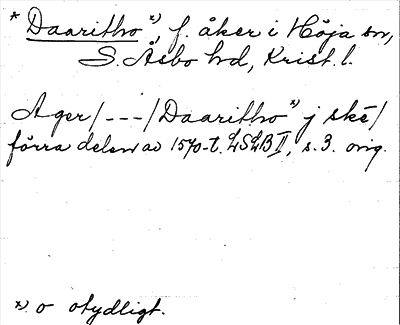 * Daaritho *), f. åker i Höja sn,
S. Åsbo hd, Krist. l.
Ager/---/Daaritho *) j ske/
förra delen av 1570-t. LSLB II, s. 3. orig.
*) o otydligt.